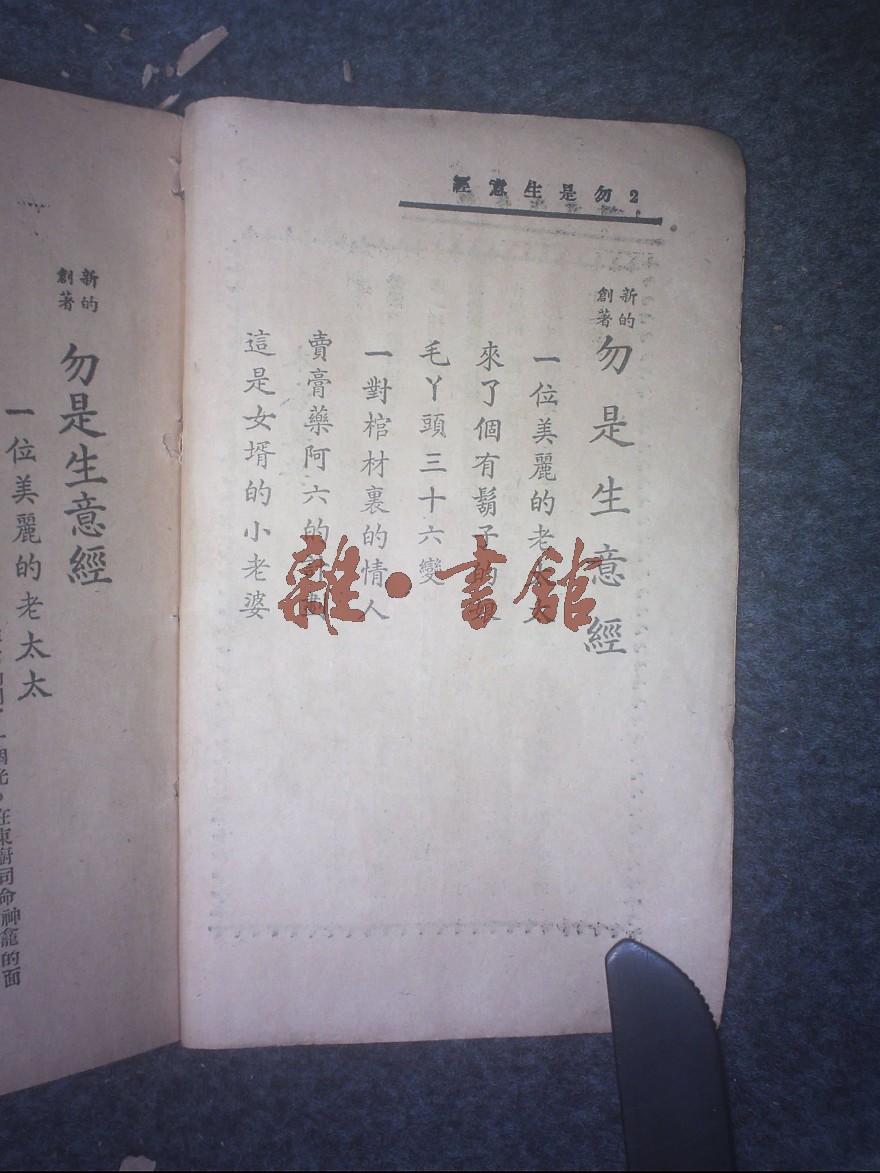 2 勿是生意經
新的
創著
勿是生意經
一位美麗的老太太
來了個有鬍子的
毛丫頭三十六變
一對棺材裏的情人
賣膏藥阿六的
這是女壻的小老婆
雜·書館
新的
創著
勿是生意經
一位美麗的老太太
在東廚司命神龕的面